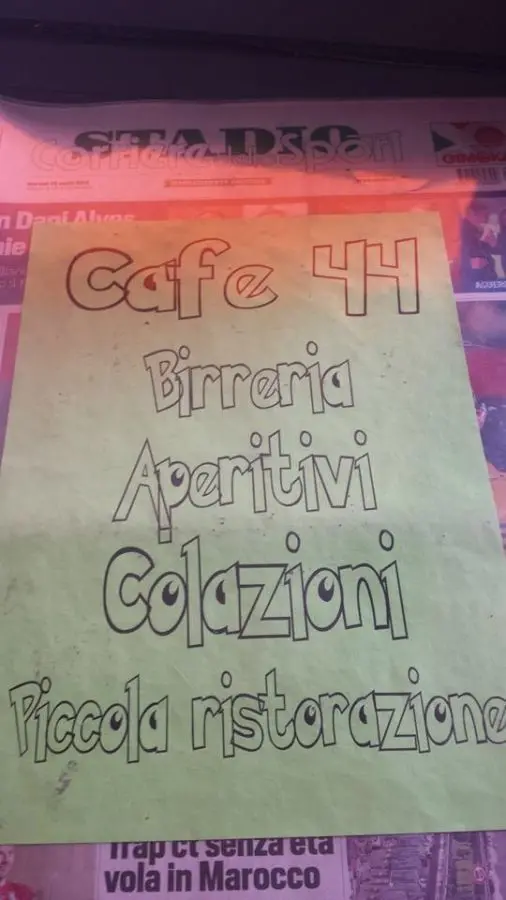 STADIO
Corriere dello Sport
n Dani Alves
Cafe 44
Birreria
Aperitivi
Colazioni
Piccola ristorazione
Trap ct senza età
vola in Marocco